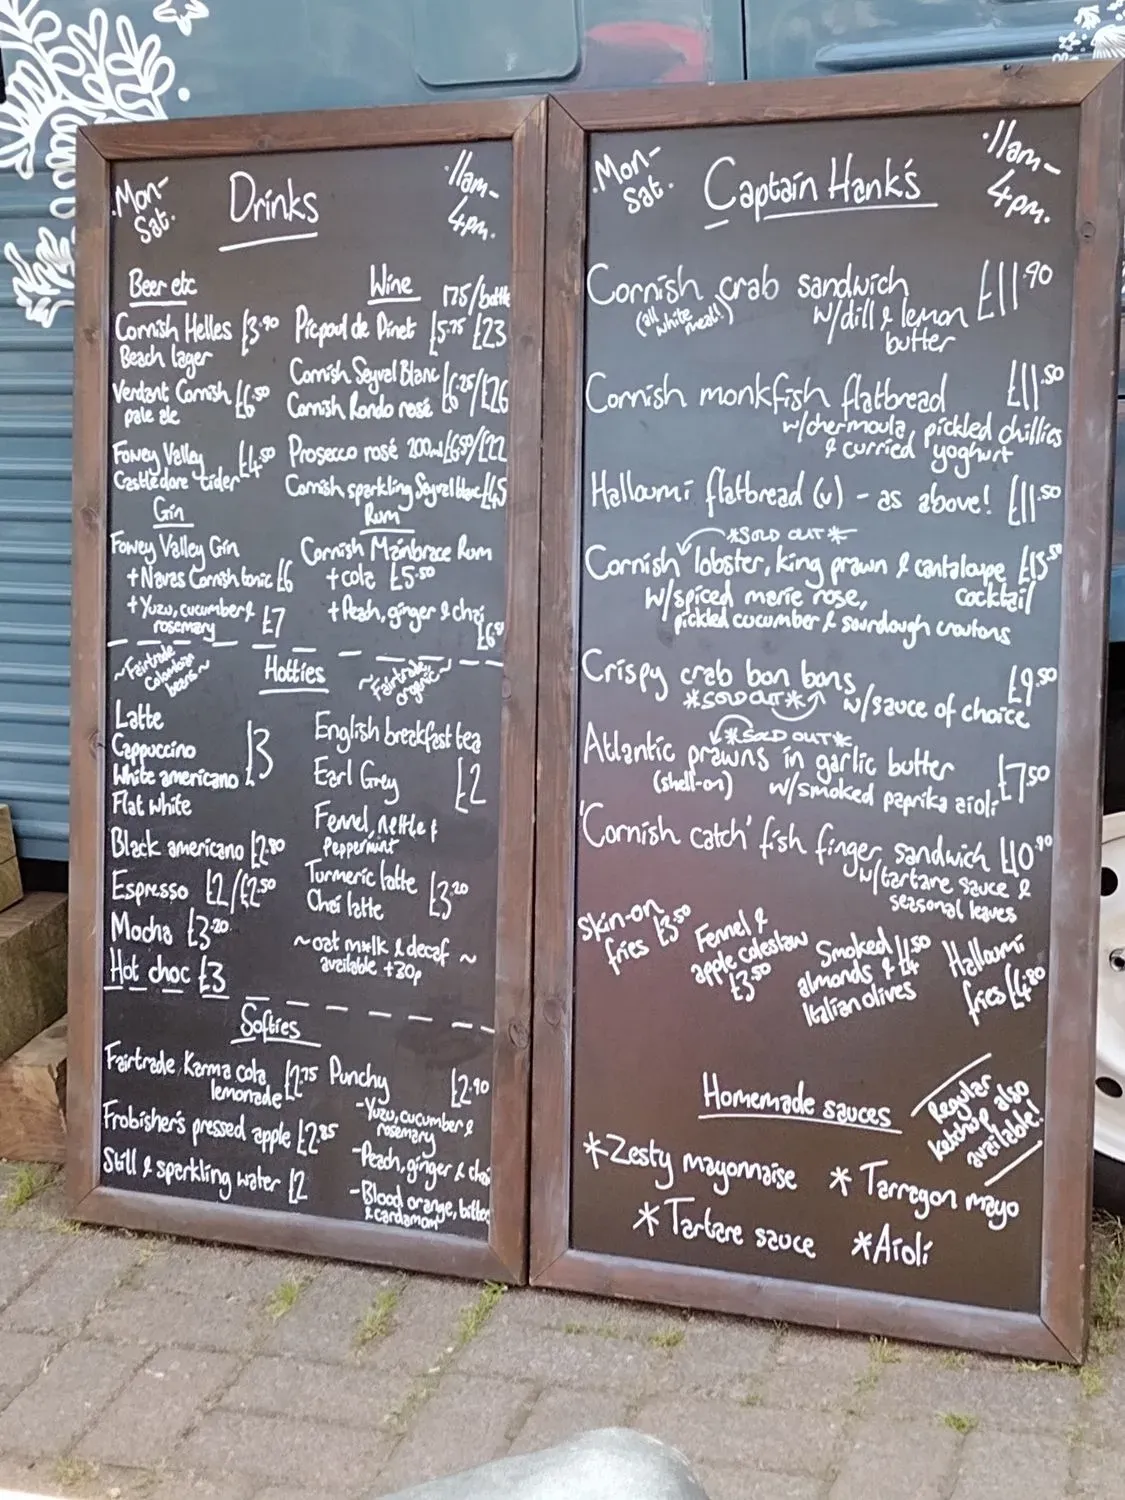 Mon-
Sat.
Drinks
11am-
4pm.
Beer etc
Cornish Helles £3.90
Beach lager
Verdant Cornish £6.50
pale ale
Fowey Valley £4.50
Castledore Cider
Wine 175/bottle
Picpoul de Pinet £5.75 £23
Cornish Seyval Blanc
Cornish Rondo rosé £6.25/£26
Prosecco rosé 200ml £6.50/£22
Cornish sparkling Seyval blanc £45
Gin
Fowey Valley Gin
+ Navas Cornish tonic £6
+ Yuzu, cucumber &
rosemary £7
Rum
Cornish Mainbrace Rum
+ cola £5.50
+ Peach, ginger & chai
~Fairtrade
Colombian
beans~
Hotties
~Fairtrade
organic~
Latte
Cappuccino £3
White americano
Flat white
Black americano £2.80
Espresso £2/£2.50
Mocha £3.20
Hot choc £3
English breakfast tea
Earl Grey £2
Fennel, nettle &
Peppermint
Turmeric latte £3.20
Chai latte
~oat m*lk & decaf ~
available +30p
Softies
Fairtrade Karma cola £2.75
lemonade
Frobisher's pressed apple £2.85
Still & sparkling water £2
Punchy £2.90
-Yuzu, cucumber &
rosemary
-Peach, ginger & chai
-Blood orange, bitters
& cardamom
Mon-
Sat.
Captain Hank's
11am-
4pm.
Cornish crab sandwich £11.90
(all white meat!) w/dill & lemon
butter
Cornish monkfish flatbread £11.50
w/chermoula, pickled chillies
& curried yoghurt
Halloumi flatbread (v) - as above! £11.50
*SOLD OUT*
Cornish lobster, king prawn & cantaloupe £15.50
cocktail
w/spiced marie rose,
pickled cucumber & sourdough croutons
Crispy crab bon bons £9.50
*SOLD OUT* w/sauce of choice
*SOLD OUT*
Atlantic prawns in garlic butter £7.50
(shell-on) w/smoked paprika aioli
'Cornish catch' fish finger sandwich £10.90
w/tartare sauce &
seasonal leaves
Skin-on
fries £3.50
Fennel &
apple coleslaw
£3.50
Smoked
almonds &
Italian olives
Halloumi
fries £4.80
Homemade sauces
Regular
ketchup also
available!
*Zesty mayonnaise
*Tarragon mayo
*Tartare sauce
*Aioli